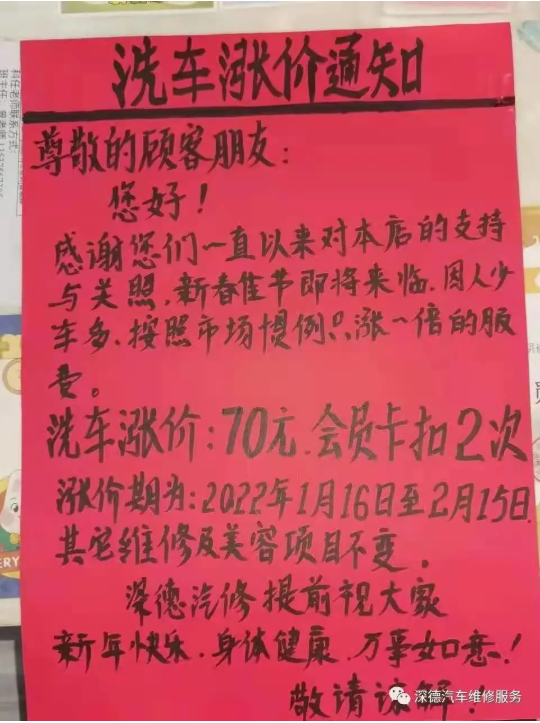 洗车涨价通知
尊敬的顾客朋友：
您好！
感谢您们一直以来对本店的支持
与关照，新春佳节即将来临，因人少
车多，按照市场惯例只涨一倍的服
费。
洗车涨价：70元，会员卡扣2次
涨价期为：2022年1月16日至2月15日
其它维修及美容项目不变。
深德汽修提前祝大家
新年快乐，身体健康，万事如意！
敬请谅解！
深德汽车维修服务